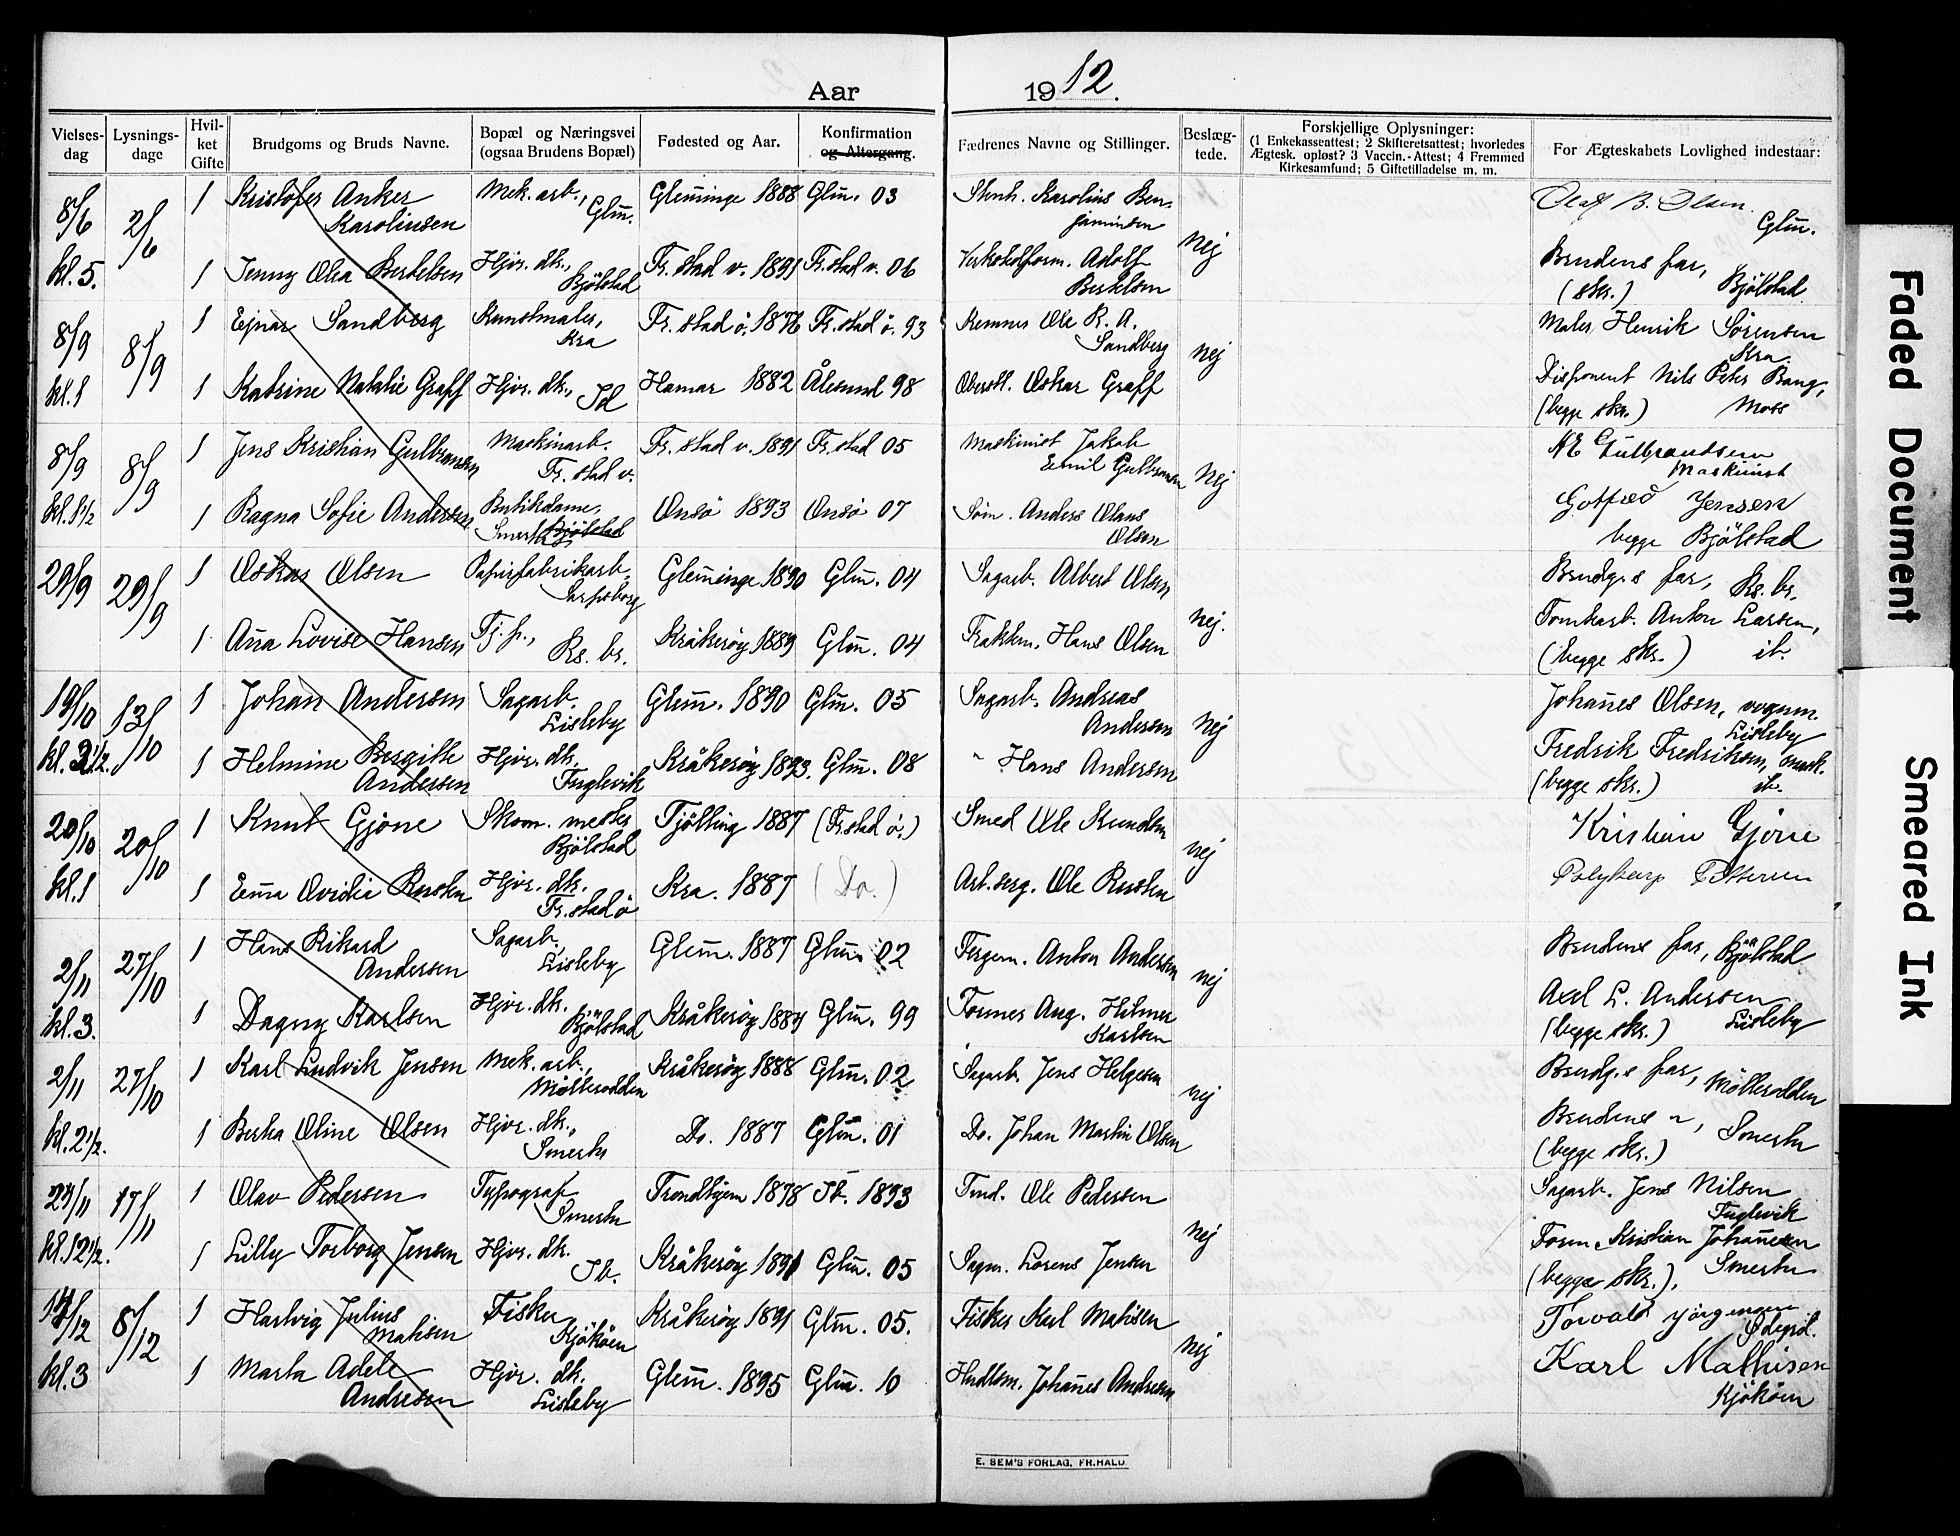 Aar 1912.
Vielses-dag
Lysnings-dage
Hvil-ket Gifte
Brudgoms og Bruds Navne.
Bopæl og Næringsvei (ogsaa Brudens Bopæl)
Fødested og Aar.
Konfirmation og Altergang.
Fædrenes Navne og Stillinger.
Beslæg-tede.
Forskjellige Oplysninger:
(1 Enkekasseattest; 2 Skifteretsattest; hvorledes
Ægtesk. opløst? 3 Vaccin.-Attest; 4 Fremmed
Kirkesamfund; 5 Giftetilladelse m. m.
For Ægteskabets Lovlighed indestaar:
8/6 2/6 1 Kristofer Anker Karolinsen Mek. arb., Glm. Glemminge 1888 Glm. 03 Karolius Benjaminsen nej Olaf B. Olsen Glm.
kl. 5. 1 Jenny Olea Bertelsen Hjvr. dk., Bjölstad Fr.stad v. 1891 Fr.stad v. 06 Adolf Bertelsen Brudens far, (skr.) Bjölstad
8/9 8/9 1 Ejnar Sandberg Kunstmaler, Kra Fr.stad ö. 1876 Fr.stad ö. 93 Kemner Ole R. A. Sandberg nej Maler Henrik Sörensen Kra.
kl. 1 1 Katrine Natalie Graff Hjvr. dk., Id Hamar 1882 Ålesund 98 Oberstl. Oskar Graff Disponent Nils Peter Bang, (begge skr.) Moss
8/9 8/9 1 Jens Kristian Gulbransen Maskinarb. Fr.stad v. Fr.stad v. 1891 Fr.stad 05 Maskinist Jakob Emil Gulbransen nej Gulbrandsen Maskinist
kl. 1 1/2 1 Ragna Sofie Andersen Butikdame, Smertu Bjölstad Onsö 1893 Onsö 07 Söm. Anders Olaus Olsen Gotfred Jensen begge Bjölstad
29/9 29/9 1 Oskar Olsen Papirfabrikarb. Sarpsborg Glemminge 1890 Glm. 04 Sagarb. Albert Olsen nej. Brudg.s far, Rs. br.
1 Anna Lovise Hansen Tj.p., Rs. br. Kråkeröy 1889 Glm. 04 Hans Olsen Tomtearb. Anton Larsen, (begge skr.) ib.
19/10 13/10 1 Johan Andersen Sagarb. Lisleby Glem. 1890 Glm. 05 Sagarb. Andreas Andersen nej Johannes Olsen, vognm. Lisleby
1 Helmine Bergitte Andersen Hjvr. dk. Fuglevik Kråkeröy 1893. Glm. 08 " Hans Andersen Fredrik Fredriksen, (begge skr.) ib.
20/10 20/10 1 Knut Gjöne Skom. mester Bjölstad Tjölling 1887 (Fr.stad ö.) Smed Ole Knudsen nej Kristian Gjöne
kl. 1 1 Emma Ovidie Rusten Hjvr. dk. Fr.stad ö Kra. 1887 (Do.) Ole Rusten Polykarp Pettersen
2/11 27/10 1 Hans Rikard Andersen Sagarb., Lisleby Glem. 1887 Glm. 02 Fergem. Anton Andersen nej Brudens far, Bjölstad
kl. 3. 1 Dagny Karlsen Hjvr. dk. Bjölstad Kråkeröy 1884 Glm. 99 Former Aug. Hilmer Karlsen Axel L. Andersen (begge skr.) Lisleby
2/11 27/10 1 Karl Ludvik Jensen Mek. arb., Möllerodden Kråkeröy 1888 Glm. 02 Sagarb. Jens Helgesen nej Brudg.s far, Möllerodden
kl. 2 1/2. 1 Berta Oline Olsen Hjvr. dk., Smertu Do. 1887 Glm. 01 Do. Johan Martin Olsen Brudens ", Smertu (begge skr.)
24/11 17/11 1 Olav Pedersen Typograf Smertu Trondhjem 1878 Ib. 1893 Ole Pedersen nej Sagarb. Jens Nilsen Fuglevik
kl. 12 1/2. 1 Lilly Torborg Jensen Hjvr. dk. Ib. Kråkeröy 1891 Glm. 05 Sagm. Lorens Jensen Form. Kristian Johannesen (begge skr.). Smertu
14/12 8/12 1 Hartvig Julius Matisen Fisker Kjököen Kråkeröy 1891 Glm. 05. Fisker Karl Matisen nej Torvald Jörgensen
kl. 3 1 Marta Adele Andresen Hjvr. dk. Lisleby Glem. 1895 Glm. 10 Johannes Andresen Karl Mathisen Kjököen
E. SEM'S FORLAG, FR.HALD.
Faded Document
Smeared Ink